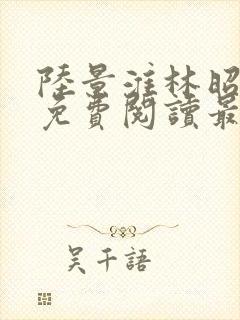 陸景淮林昭
免費閱讀最
吳千語